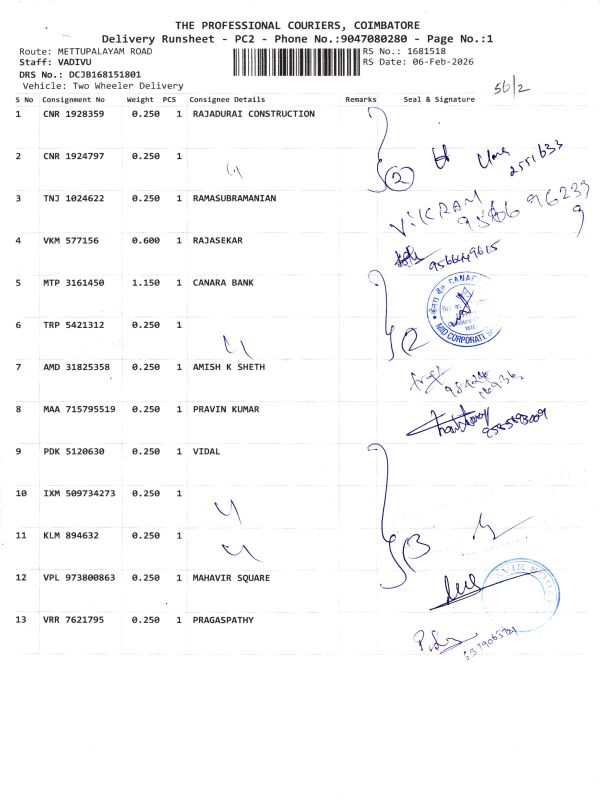 THE PROFESSIONAL COURIERS, COIMBATORE
Delivery Runsheet - PC2 - Phone No.:9047080280 - Page No.:1
Route: METTUPALAYAM ROAD RS No.: 1681518
Staff: VADIVU RS Date: 06-Feb-2026
DRS No.: DCJB168151801
Vehicle: Two Wheeler Delivery
S No Consignment No Weight PCS Consignee Details Remarks Seal & Signature
1 CNR 1928359 0.250 1 RAJADURAI CONSTRUCTION
2 CNR 1924797 0.250 1
2
3 TNJ 1024622 0.250 1 RAMASUBRAMANIAN VIKRAM
4 VKM 577156 0.600 1 RAJASEKAR
5 MTP 3161450 1.150 1 CANARA BANK
6 TRP 5421312 0.250 1
7 AMD 31825358 0.250 1 AMISH K SHETH
8 MAA 715795519 0.250 1 PRAVIN KUMAR
9 PDK 5120630 0.250 1 VIDAL
10 IXM 509734273 0.250 1
11 KLM 894632 0.250 1
12 VPL 973800863 0.250 1 MAHAVIR SQUARE
13 VRR 7621795 0.250 1 PRAGASPATHY